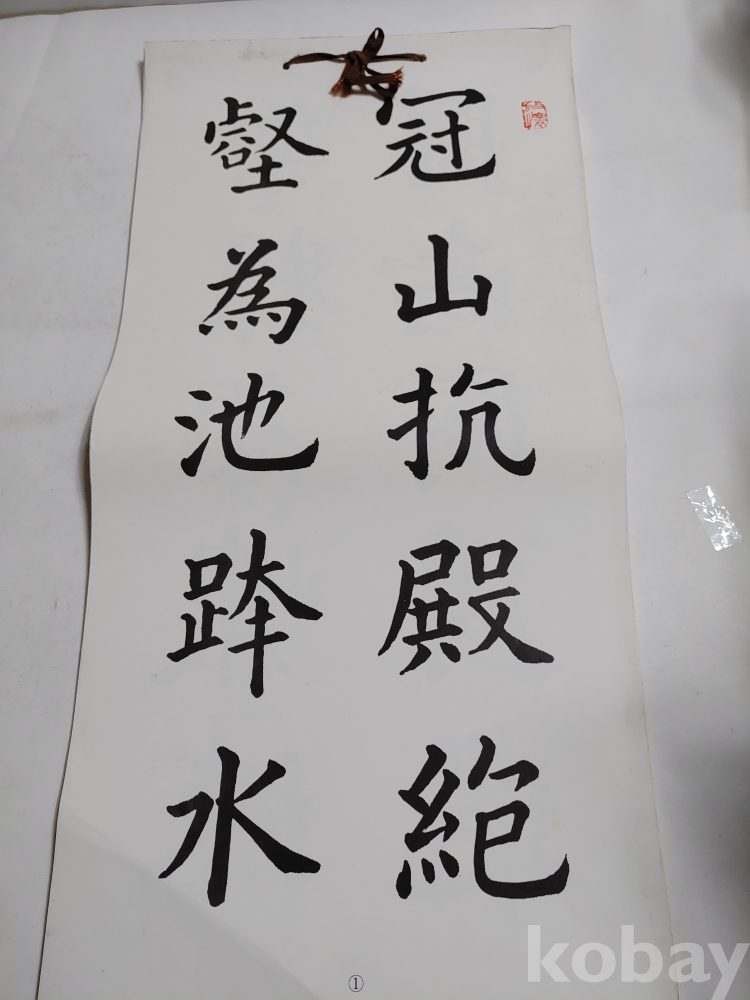 冠山抗殿絶
壑為池跨水
①
kobay